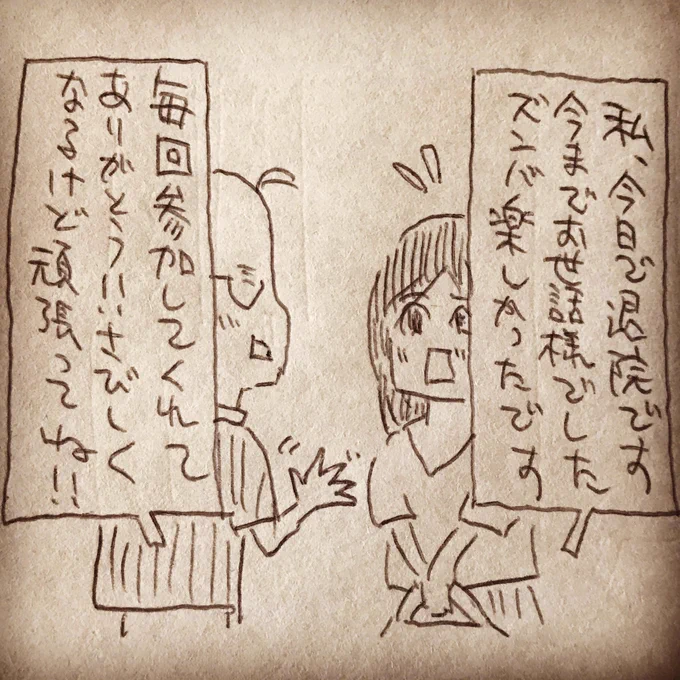 私、今日で退院です
今までお世話様でした
ズンバ楽しかったです
毎回参加してくれて
ありがとう!!さびしく
なるけど頑張ってね!!